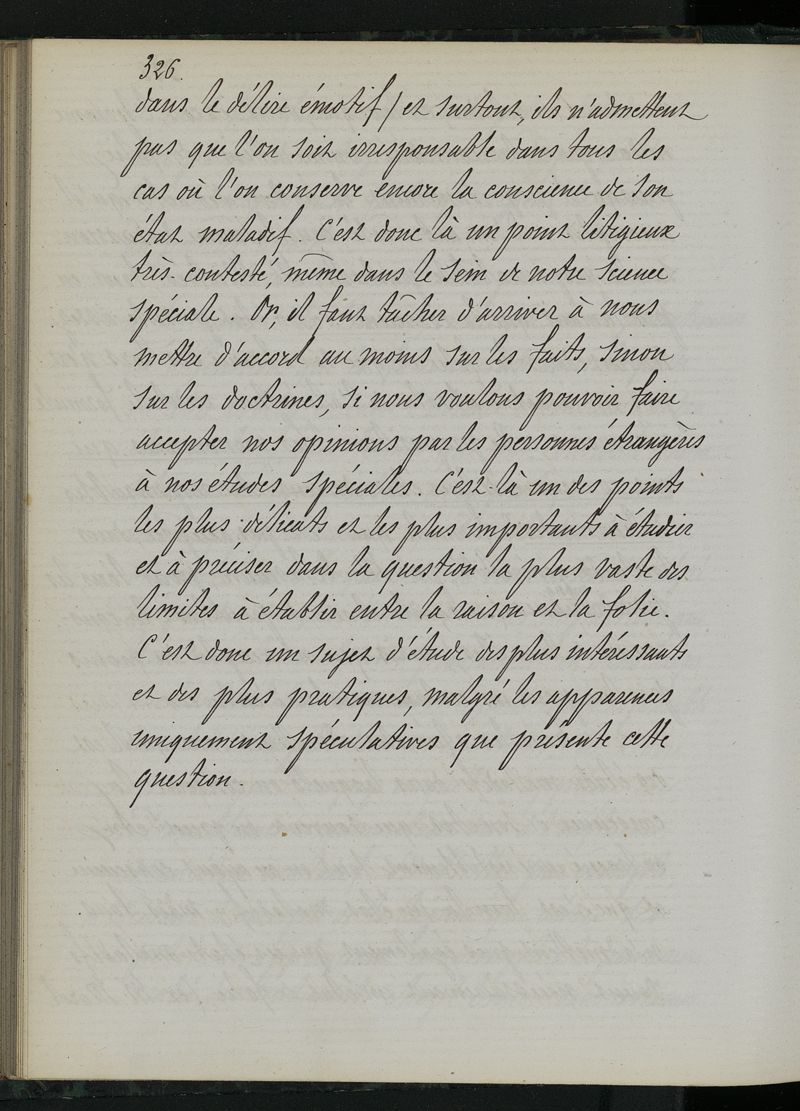 326.
dans le délire émotif) et surtout, ils n'admettent
pas que l'on soit irresponsable dans tous les
cas où l'on conserve encore la conscience de son
état maladif. C'est donc là un point litigieux
très-contesté, même dans le sein de notre science
spéciale. Or, il faut tâcher d'arriver à nous
mettre d'accord au moins sur les faits, sinon
sur les doctrines, si nous voulons pouvoir faire
accepter nos opinions par les personnes étrangères
à nos études spéciales. C'est-là un des points
les plus délicats et les plus importants à étudier
et à préciser dans la question la plus vaste des
limites à établir entre la raison et la folie.
C'est donc un sujet d'étude des plus intéressants
et des plus pratiques, malgré les apparences
uniquement spéculatives que présente cette
question.